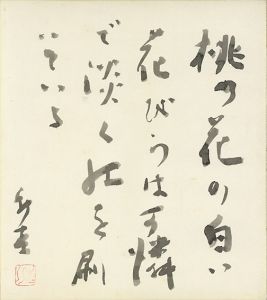 桃の花の白い
花びらは可憐
で淡く紅を刷
いている